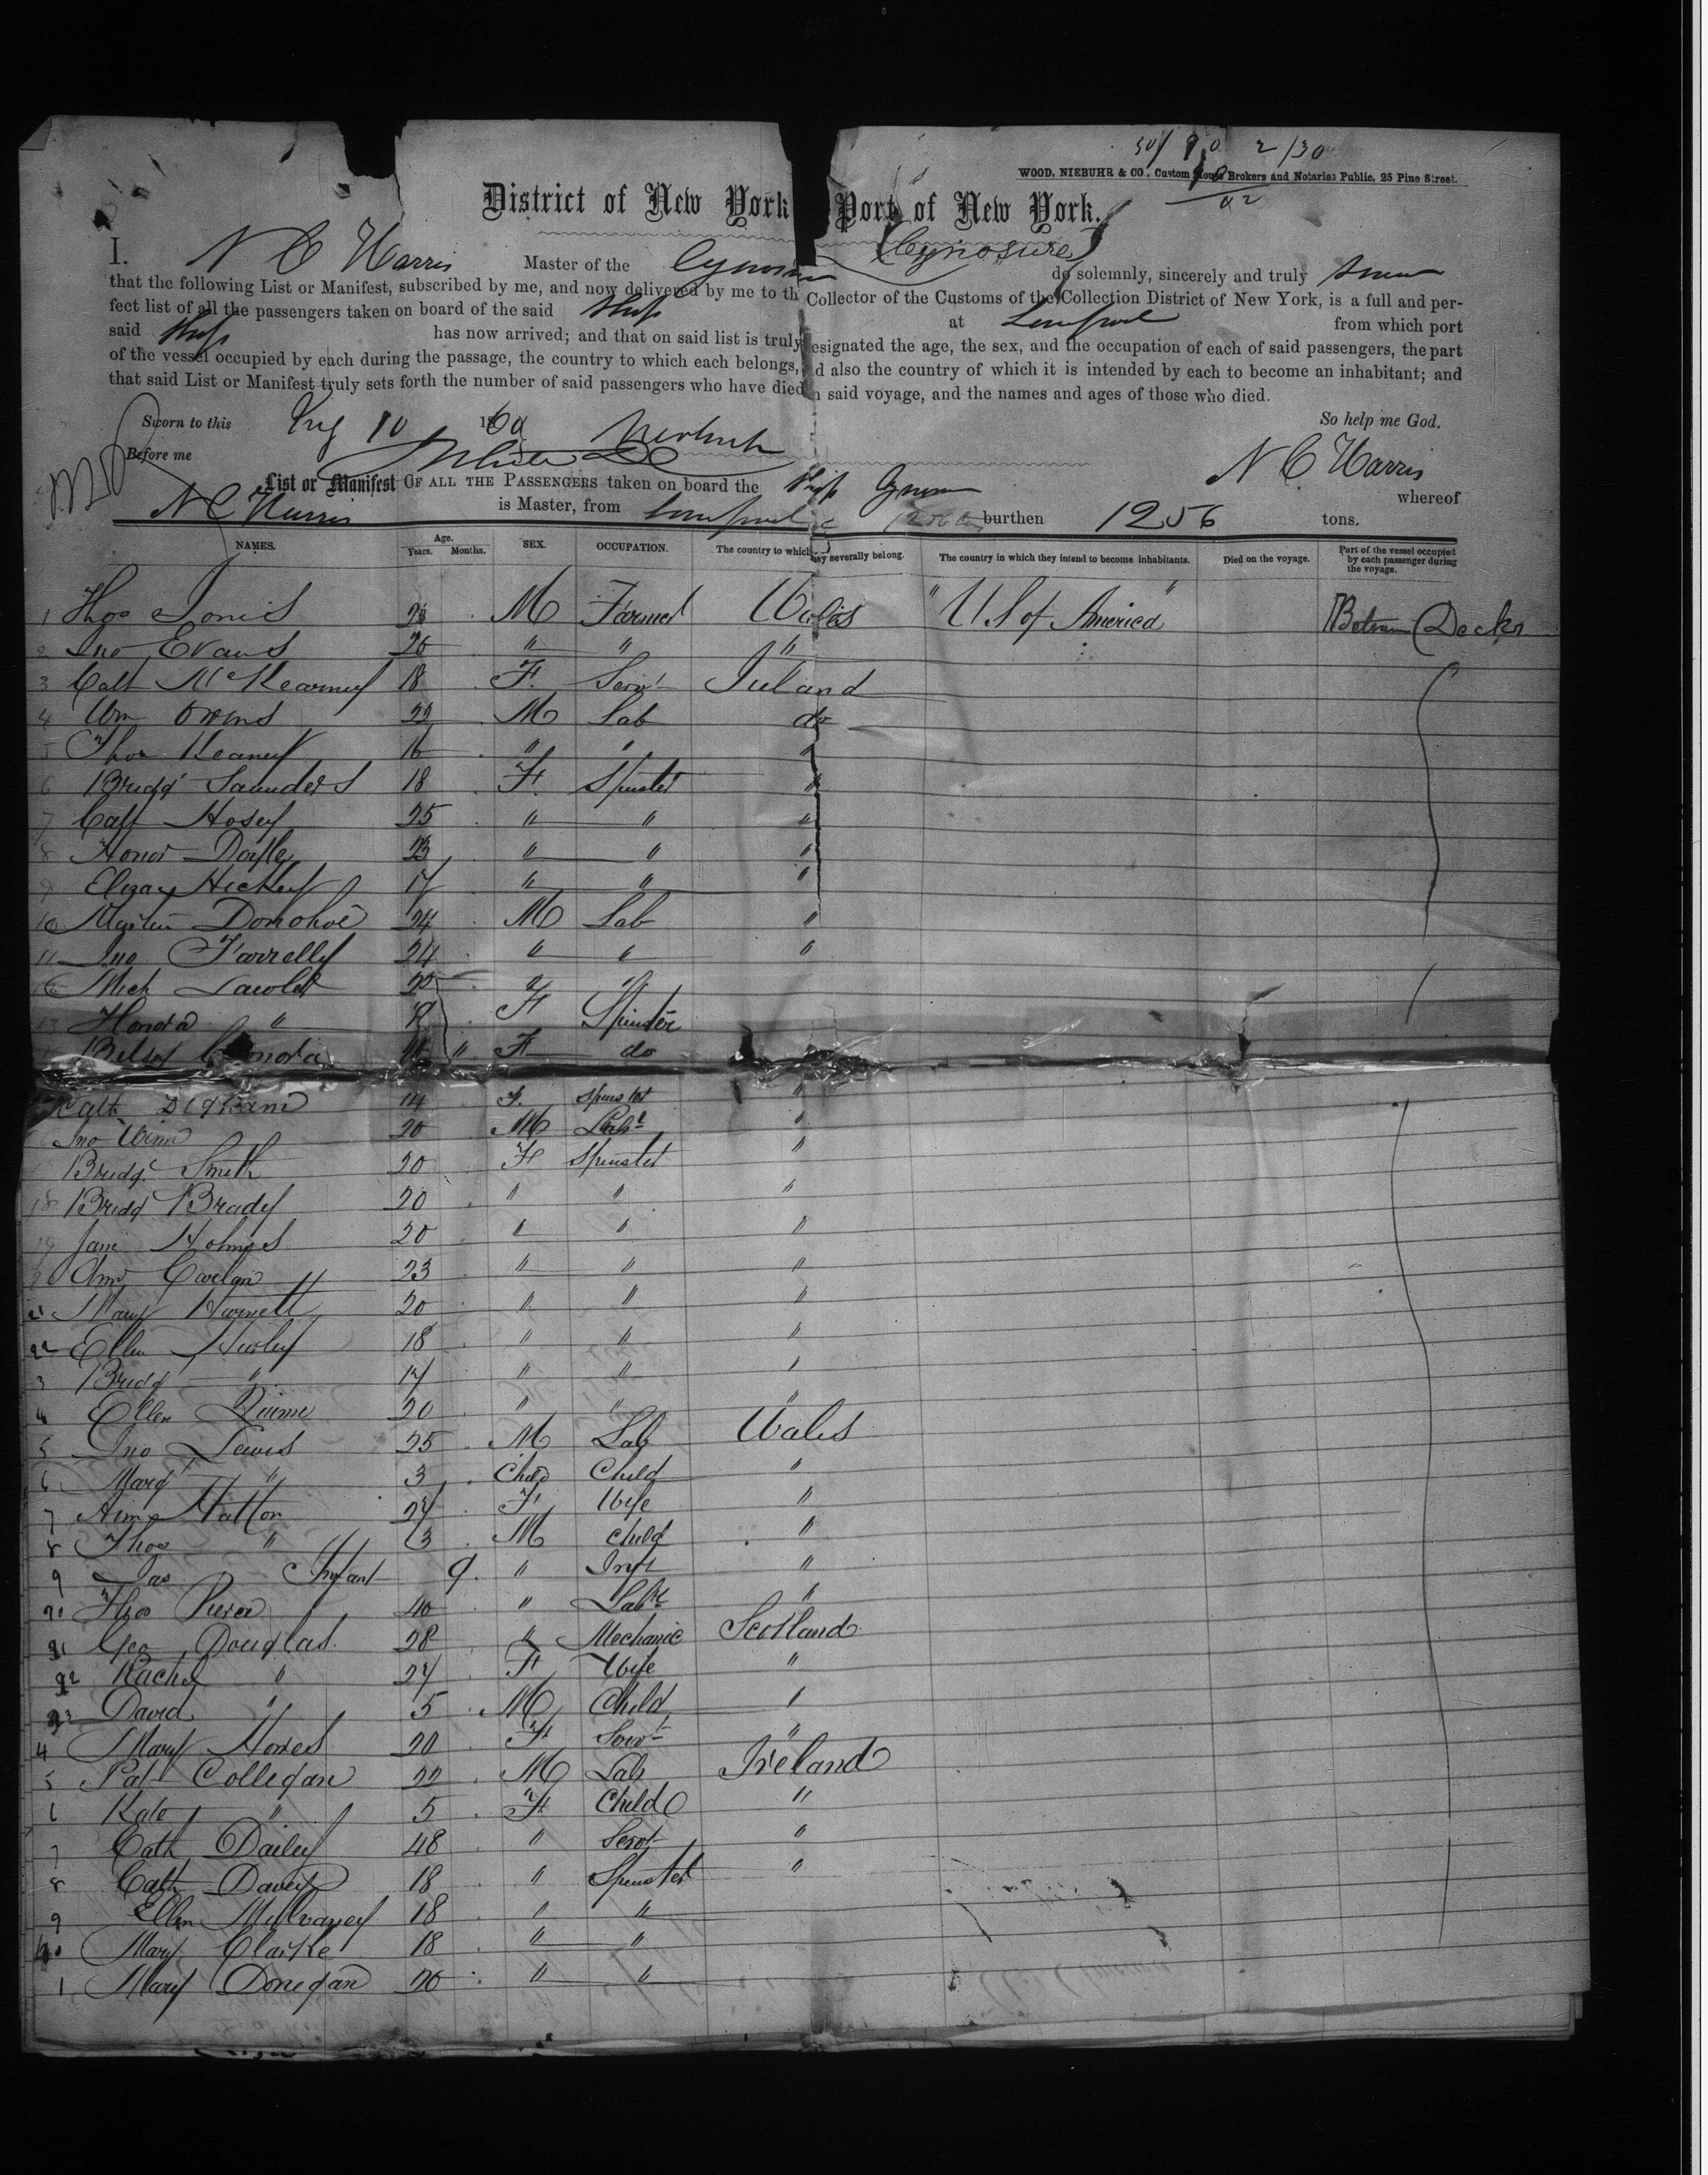 50/ 90 2/30
WOOD, NIEBUHR & CO., Custom House Brokers and Notaries Public, 25 Pine Street.
District of New York Port of New York.
(Cynosure)
I. N C Harris Master of the Cynosure do solemnly, sincerely and truly swear
that the following List or Manifest, subscribed by me, and now delivered by me to th Collector of the Customs of the Collection District of New York, is a full and per-
fect list of all the passengers taken on board of the said Ship at Liverpool from which port
said Ship has now arrived; and that on said list is truly esignated the age, the sex, and the occupation of each of said passengers, the part
of the vessel occupied by each during the passage, the country to which each belongs, d also the country of which it is intended by each to become an inhabitant; and
that said List or Manifest truly sets forth the number of said passengers who have died n said voyage, and the names and ages of those who died.
Sworn to this Aug 10 1860 So help me God.
Before me N C Harris
List or Manifest OF ALL THE PASSENGERS taken on board the Ship Cynosure whereof
N C Harris is Master, from Liverpool burthen 1256 tons.
NAMES. Age. Years. Months. SEX. OCCUPATION. The country to which hey severally belong. The country in which they intend to become inhabitants. Died on the voyage. Part of the vessel occupied by each passenger during the voyage.
1 Thos Jones 26 M Farmer Wales "U S of America" Between Decks
2 Jno Evans 26 " " "
3 Cath McKearney 18 F. Servt Ireland
4 Wm Owens 22 M Lab do
5 Thos Keaney 16 " " "
6 Bridgt Saunders 18 F. Spinster "
7 Cath Hosey 25 " " "
8 Honor Doyle 23 " " "
9 Eliza Hickey 17 " " "
10 Donohoe 24 M Lab "
11 Jno Farrelly 24 " " "
Mich " "
13 Honora " F Spinster
Betsy F do
Cath 14 F. Spinster "
Jno Winn 20 M Labr "
Bridgt Smith 20 F Spinster "
18 Bridgt Brady 20 " " "
19 Jane Holmes 20 " " "
Ann 23 " " "
21 Mary 20 " " "
22 Ellen Hurley 18 " " "
3 Bridgt " 17 " " "
4 Ellen 20 " " "
5 Jno Lewis 25 M Lab Wales
6 Margt " 3 Child Child "
7 Hatton 27 F Wife "
8 Thos " 3 M Child "
9 Jas Infant 9. " Inft "
Thos Pierce 40 " Labr "
31 Geo Douglas 28 " Mechanic Scotland
32 Rachel " 27 F Wife "
33 David " 5 M Child "
4 Mary 20 F Servt "
5 Pat Collegan 22 M Lab Ireland
6 Kate " 5 F Child "
7 Cath Dailey 48 " Servt "
8 Cath Davey 18 " Spinster "
9 Ellen Mulvaney 18 " "
40 Mary Clarke 18 " "
1 Mary Donegan 20 " "